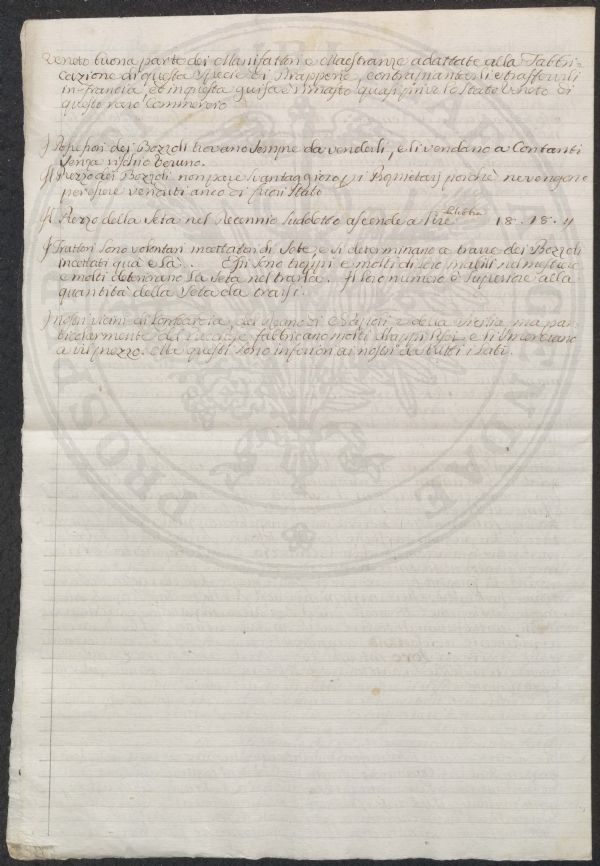 Veneto buona parte dei Manifattori e Maestranze adattate alla Fabbri=
cazione di questa specie di Drapperie, e trasferirli
in Francia, et in questa guisa è rimasto quasi privo lo Stato Veneto di
questo raro Commercio
dei Bozzoli trovano sempre da venderli, e li vendano a Contanti
senza rischio veruno.
Il prezzo dei Bozzoli non pare svantaggioso poichè ne vengono
per essere venduti anco di fuori Stato
Il Prezzo della Seta nel suddetto ascende a Lire 18 - 18 - 4
Trattori sono volontari incettatori di Sete, e si determinano a trarre dei Bozzoli
incettati quà e là. Essi sono troppi e molti di loro inabili nel mestiere
e molti deteriorano la Seta nel trarla. Il loro numero è superiore alla
quantità della Seta da trarsi.
vicini di Lombardia, del e della ma par=
ticolarmente fabbricano molti Drappi e li smerciano
a vil prezzo. Ma questi sono inferiori ai nostri da tutti i lati.
PROSPICIENDAE